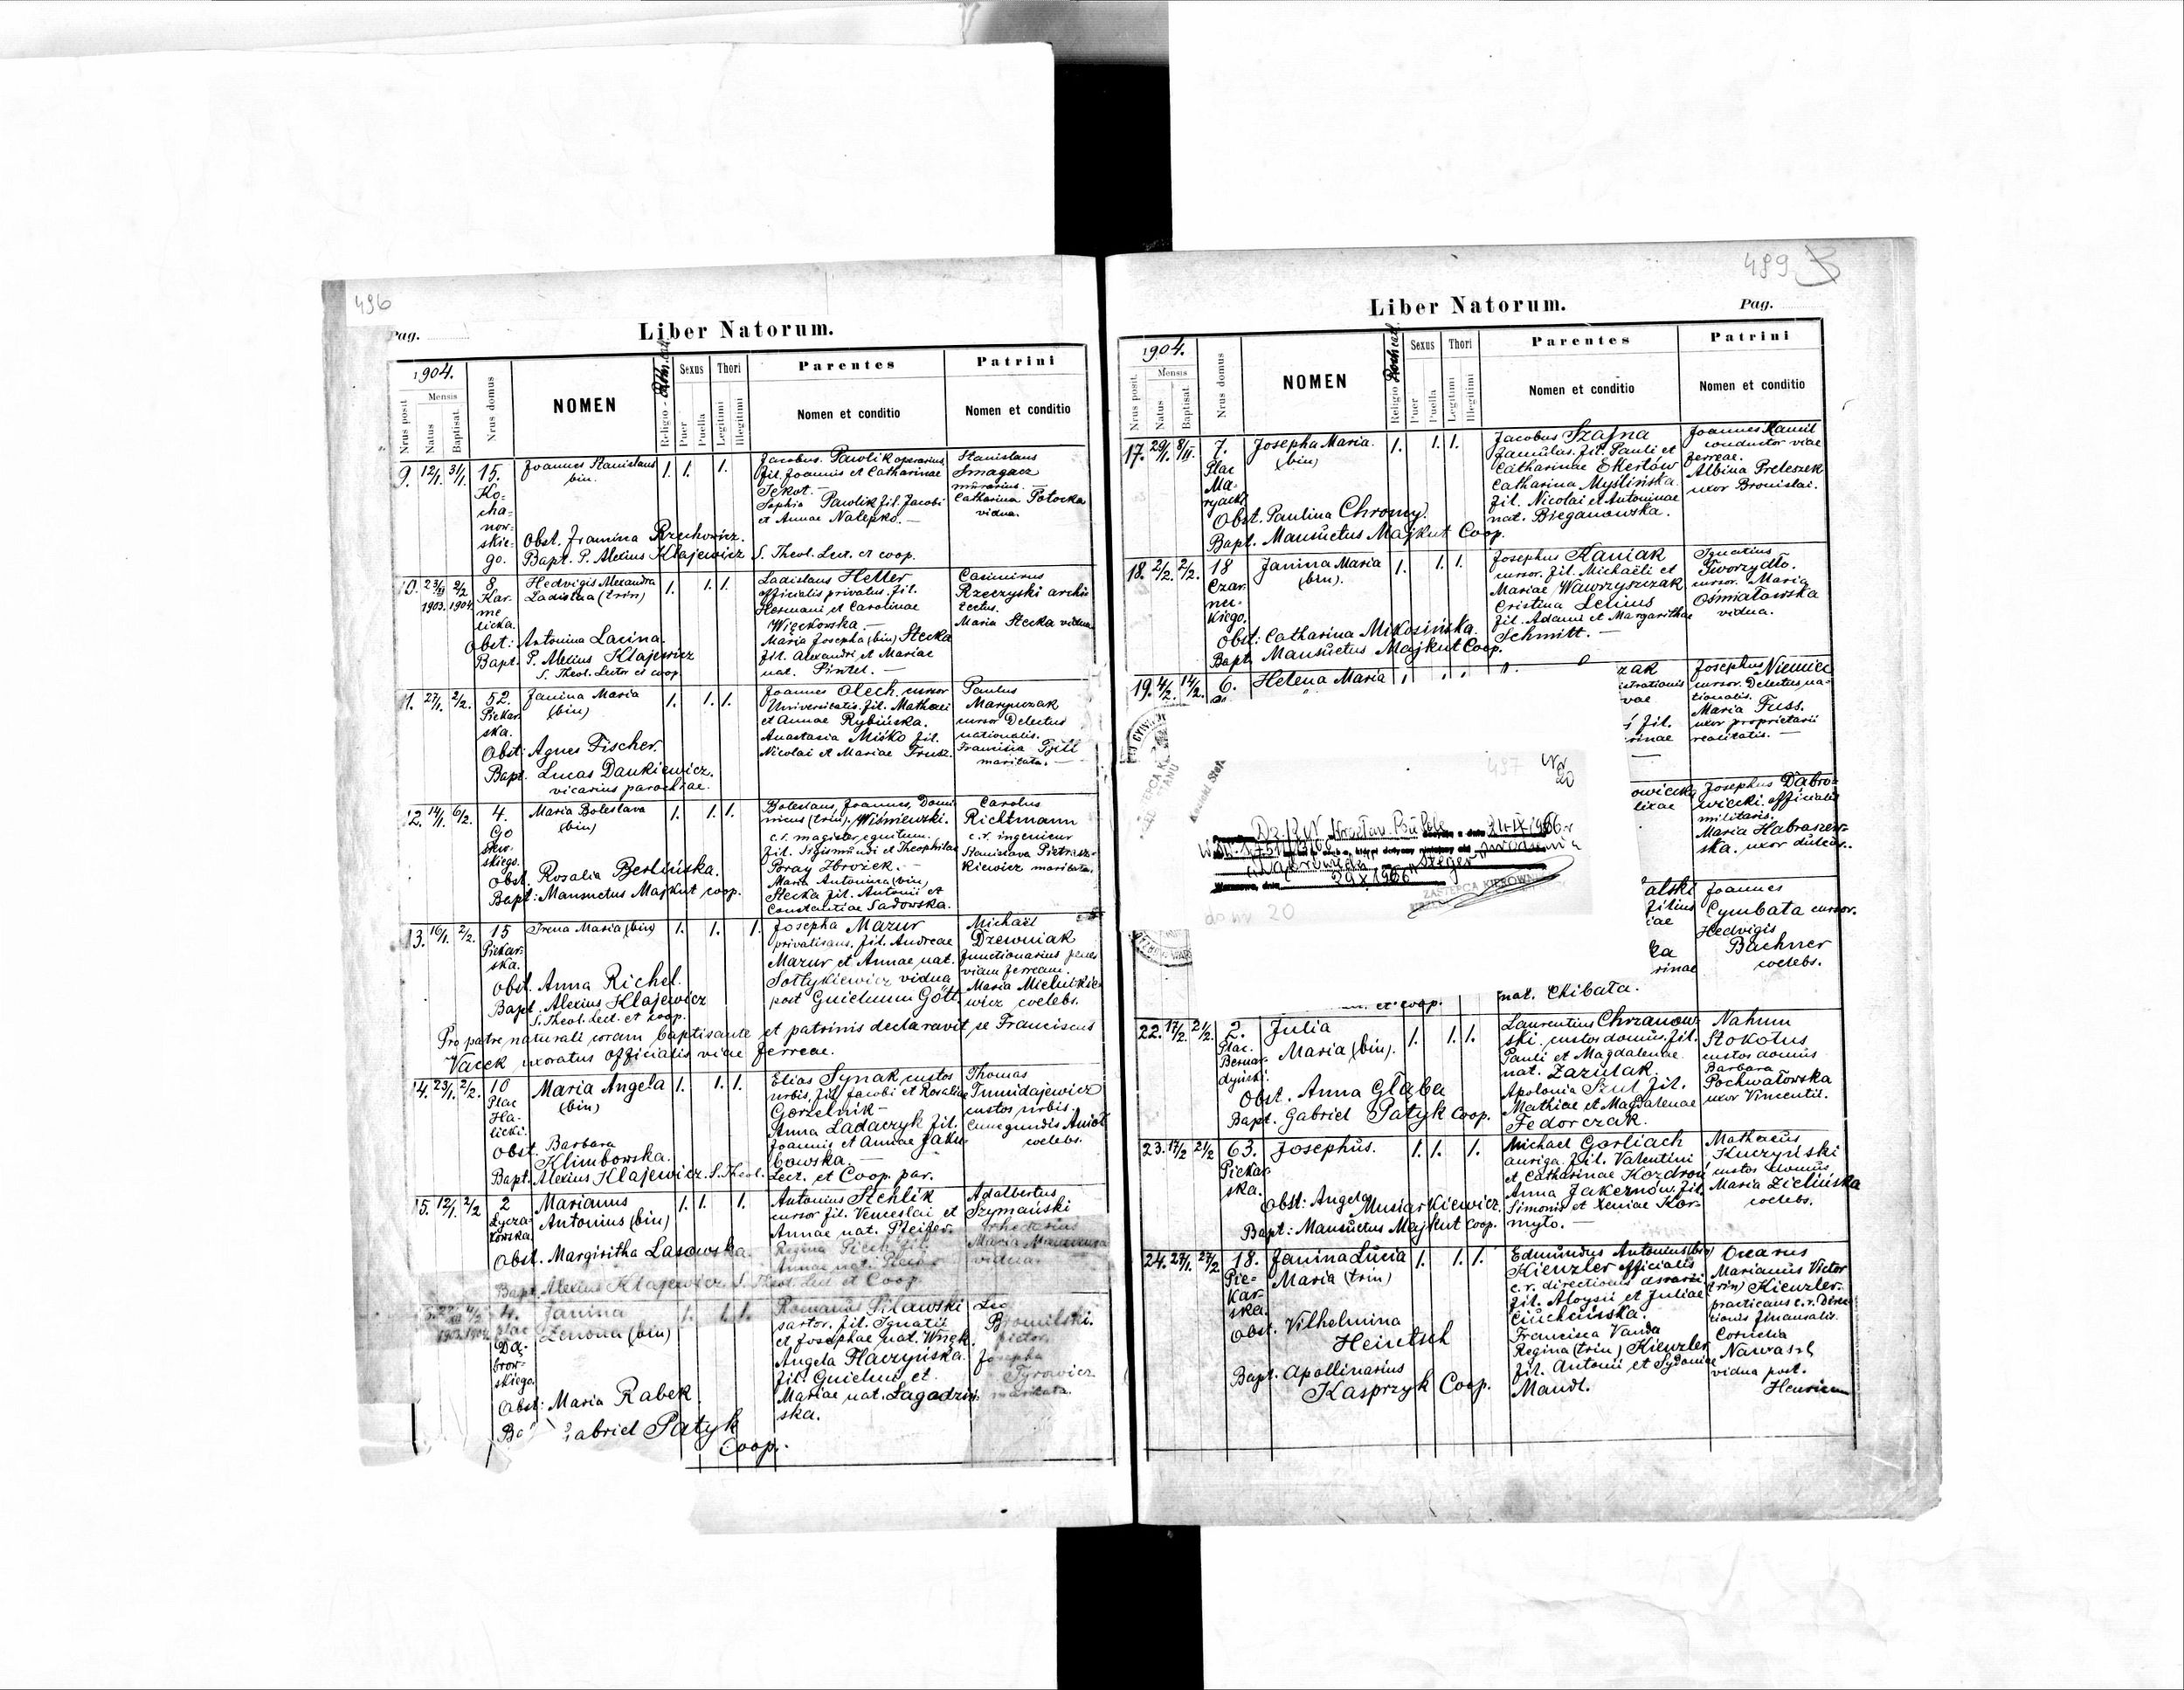 496
Pag.
Liber Natorum.
1904.
Mensis
Nrus posit.
Natus
Baptisat.
Nrus domus
NOMEN
Religio
Sexus
Puer
Puella
Thori
Legitimi
Illegitimi
Parentes
Nomen et conditio
Patrini
Nomen et conditio
9. 12/1. 31/1. 15. Joannes Stanislaus 1. 1. 1. Jacobus Pawlik operarius Stanislaus
Ko- bin. fil. Joannis et Catharinae Smagacz
cha- murarius. —
now- Sophia Pawlik fil. Jacobi Catharina Potocka
skie- et Annae Nalepko. — vidua.
go. Obst. Frannina Rzehowicz.
Bapt. P. Alexius Klajewicz S. Theol. Lect. et coop.
10. 8. Hedvigis Alexandra 1. 1. 1. Ladislaus Heller Casimirus
1903. 1904. Kar- Ladislaa (trin) officialis privatus fil. Rzeczyski archi
me Hermani et Carolinae tectus.
licka. Więckowska. — Maria Stecka vidua
Obst: Antonina Lacina. Maria Josepha (bin) Stecka
Bapt. P. Alexius Klajewicz fil. Alexandri et Mariae
S. Theol. Lector et coop. nat. Pintel. —
11. 27/1. 2/2. 52. Janina Maria 1. 1. 1. Joannes Olech cursor Paulus
Piekar (bin) Universitatis fil. Mathaei
ska. et Annae Rybińska. cursor Delectus
Obst: Agnes Fischer. Anastasia Miśko fil. nationalis.
Bapt. Lucas Dankiewicz. Nicolai et Mariae Frusz.
vicarius parochiae. maritata. —
12. 14/1. 6/2. 4. Maria Boleslava 1. 1. 1. Boleslaus, Joannes, Domi Carolus
Go (bin) nicus (trin). Wiśniewski. Richtmann
sław- c.r. magister equitum. c.r. ingenieur
skiego. fil. Sigismundi et Theophilae Stanislava Pietrasz-
Obst. Rosalia Berlińska. Poray Zbrożek. — kiewicz maritata.
Bapt: Mansuetus Majkut coop. Maria Antonina (bin)
Stecka fil. Antonii et
Constantiae Sadowska.
13. 16/1. 2/2. 15 Irena Maria (bin) 1. 1. 1. Josepha Mazur Michaël
Piekar- privatisans. fil. Andreae Drewniak
ska. Mazur et Annae nat. functionarius penes
Obst. Anna Richel. Sołtykiewicz vidua viam ferream.
Bapt. Alexius Klajewicz post Guielmum Gött
S. Theol. Lect. et coop. wicz coelebs.
Pro patre naturali coram baptisante et patrinis declaravit se Franciscus
Vacek uxoratus officialis viae ferreae.
14. 23/1. 2/2. 10 Maria Angela 1. 1. 1. Elias Synak custos Thomas
Plac (bin) urbis, fil. Jacobi et Rosaliae Tumidajewicz
Ha- Gorzelnik — custos urbis.
licki. Anna Ladaczyk fil. Cunegundis Anioł
Obst. Barbara Joannis et Annae Jaku coelebs.
Klimbowska. bowska. —
Bapt. Alexius Klajewicz. S. Theol. Lect. et Coop. par.
15. 12/1. 2/2 2 Marianus 1. 1. 1. Antonius Stehlik Adalbertus
Łycza- Antonius (bin) cursor fil. Venceslai et Szymański
kowska. Annae nat. Pfeifer.
Obst. Margiritha Lasowska. Regina Piech fil. Maria
Annae nat. vidua.
Bapt. Alexius Klajewicz. S. Theol. Lect et Coop.
4. Janina 1. 1. 1. Romanus Pilawski Leo
1903. 1904. plac Zenona (bin) sartor. fil. Ignatii
Dą- et Josephae nat. Wnęk. pictor.
brow- Angela Flaczyńska. Josepha
skiego. fil. Guielmi et Tyrowicz
Obst: Maria Rabek Mariae nat. Łagodziń maritata.
ska.
Gabriel Patyk
Coop.
489
Liber Natorum.
Pag.
1904.
Mensis
Nrus posit.
Natus
Baptisat.
Nrus domus
NOMEN
Religio
Sexus
Puer
Puella
Thori
Legitimi
Illegitimi
Parentes
Nomen et conditio
Patrini
Nomen et conditio
17. 29/1. 8/II. 7. Josepha Maria. 1. 1. 1. Jacobus Szajna Joannes Kamil
Plac (bin) famulus. fil. Pauli et conductor viae
Ma- Catharinae Ekertów ferreae.
ryacki Catharina Myslińska. Albina Preteszek
Obst. Paulina Chromy. fil. Nicolai et Antoninae uxor Bronislai.
Bapt. Mansuetus Majkut Coop. nat. Bieganowska.
18. 2/2. 2/2. 18 Janina Maria 1. 1. 1. Josephus Kaniak Ignatius
Czar- (bin). cursor. fil. Michaëli et Tworzydło.
nec- Mariae Wawrzyszczak cursor. Maria
kiego. Cristina Lelius Ośmiałowska
Obst: Catharina Mikosińska. fil. Adami et Margarithae vidua.
Bapt. Mansuetus Majkut Coop. Schmitt. —
19. 4/2. 14/2. 6. Helena Maria Josephus Niemiec
cursor. Delectus na-
tionalis.
Maria Fuss.
uxor proprietarii
realitatis. —
497
Nr 20
29 X 1966
Steger
ZASTĘPCA KIEROWNIKA
do nr 20
Josephus Dąbro-
wiecki. officialis
militaris.
Maria Habraszew-
ska. uxor
Joannes
Cymbata cursor.
Hedvigis
Bachner
coelebs.
et coop. nat. Chibata.
22. 17/2. 21/2. 2. Julia 1. 1. 1. Laurentius Chrzanow Nahum
Plac. Maria (bin). ski. custos domus. fil. Stokotus
Bernar- Pauli et Magdalenae custos domus
dyński. nat. Zazulak. Barbara
Obst. Anna Głąba Apolonia Szul fil. Pochwałowska
Bapt. Gabriel Patyk Coop. Mathiae et Magdalenae uxor Vincentii.
Fedorczak.
23. 17/2 21/2 63. Josephus. 1. 1. 1. Michael Garliach Mathaeus
Piekar auriga. fil. Valentini Kuczyński
ska. et Catharinae Kozdroń custos domus
Obst: Angela Musiarkiewicz. Anna Jakernow. fil. Maria Zielińska
Bapt: Mansuetus Majkut Coop. Simonis et Xeniae Kor- coelebs.
myło. —
24. 27/1. 27/2 18. Janina Lucia 1. 1. 1. Edmundus Antonius (bin) Oscarus
Pie- Maria (trin) Kienzler officialis Marianus Victor
kar- c.r. directionis (trin) Kienzler.
ska. fil. Aloysii et Juliae practicans c.r. Direc
Obst. Vilhelmina Ciuchcińska. tionis finansalis.
Heintsch Francisca Vanda Cornelia
Regina (trin) Kienzler
Bapt. Apollinarius fil. Antonii et Sydoniae vidua post.
Kasprzyk Coop. Mandl. Henricum